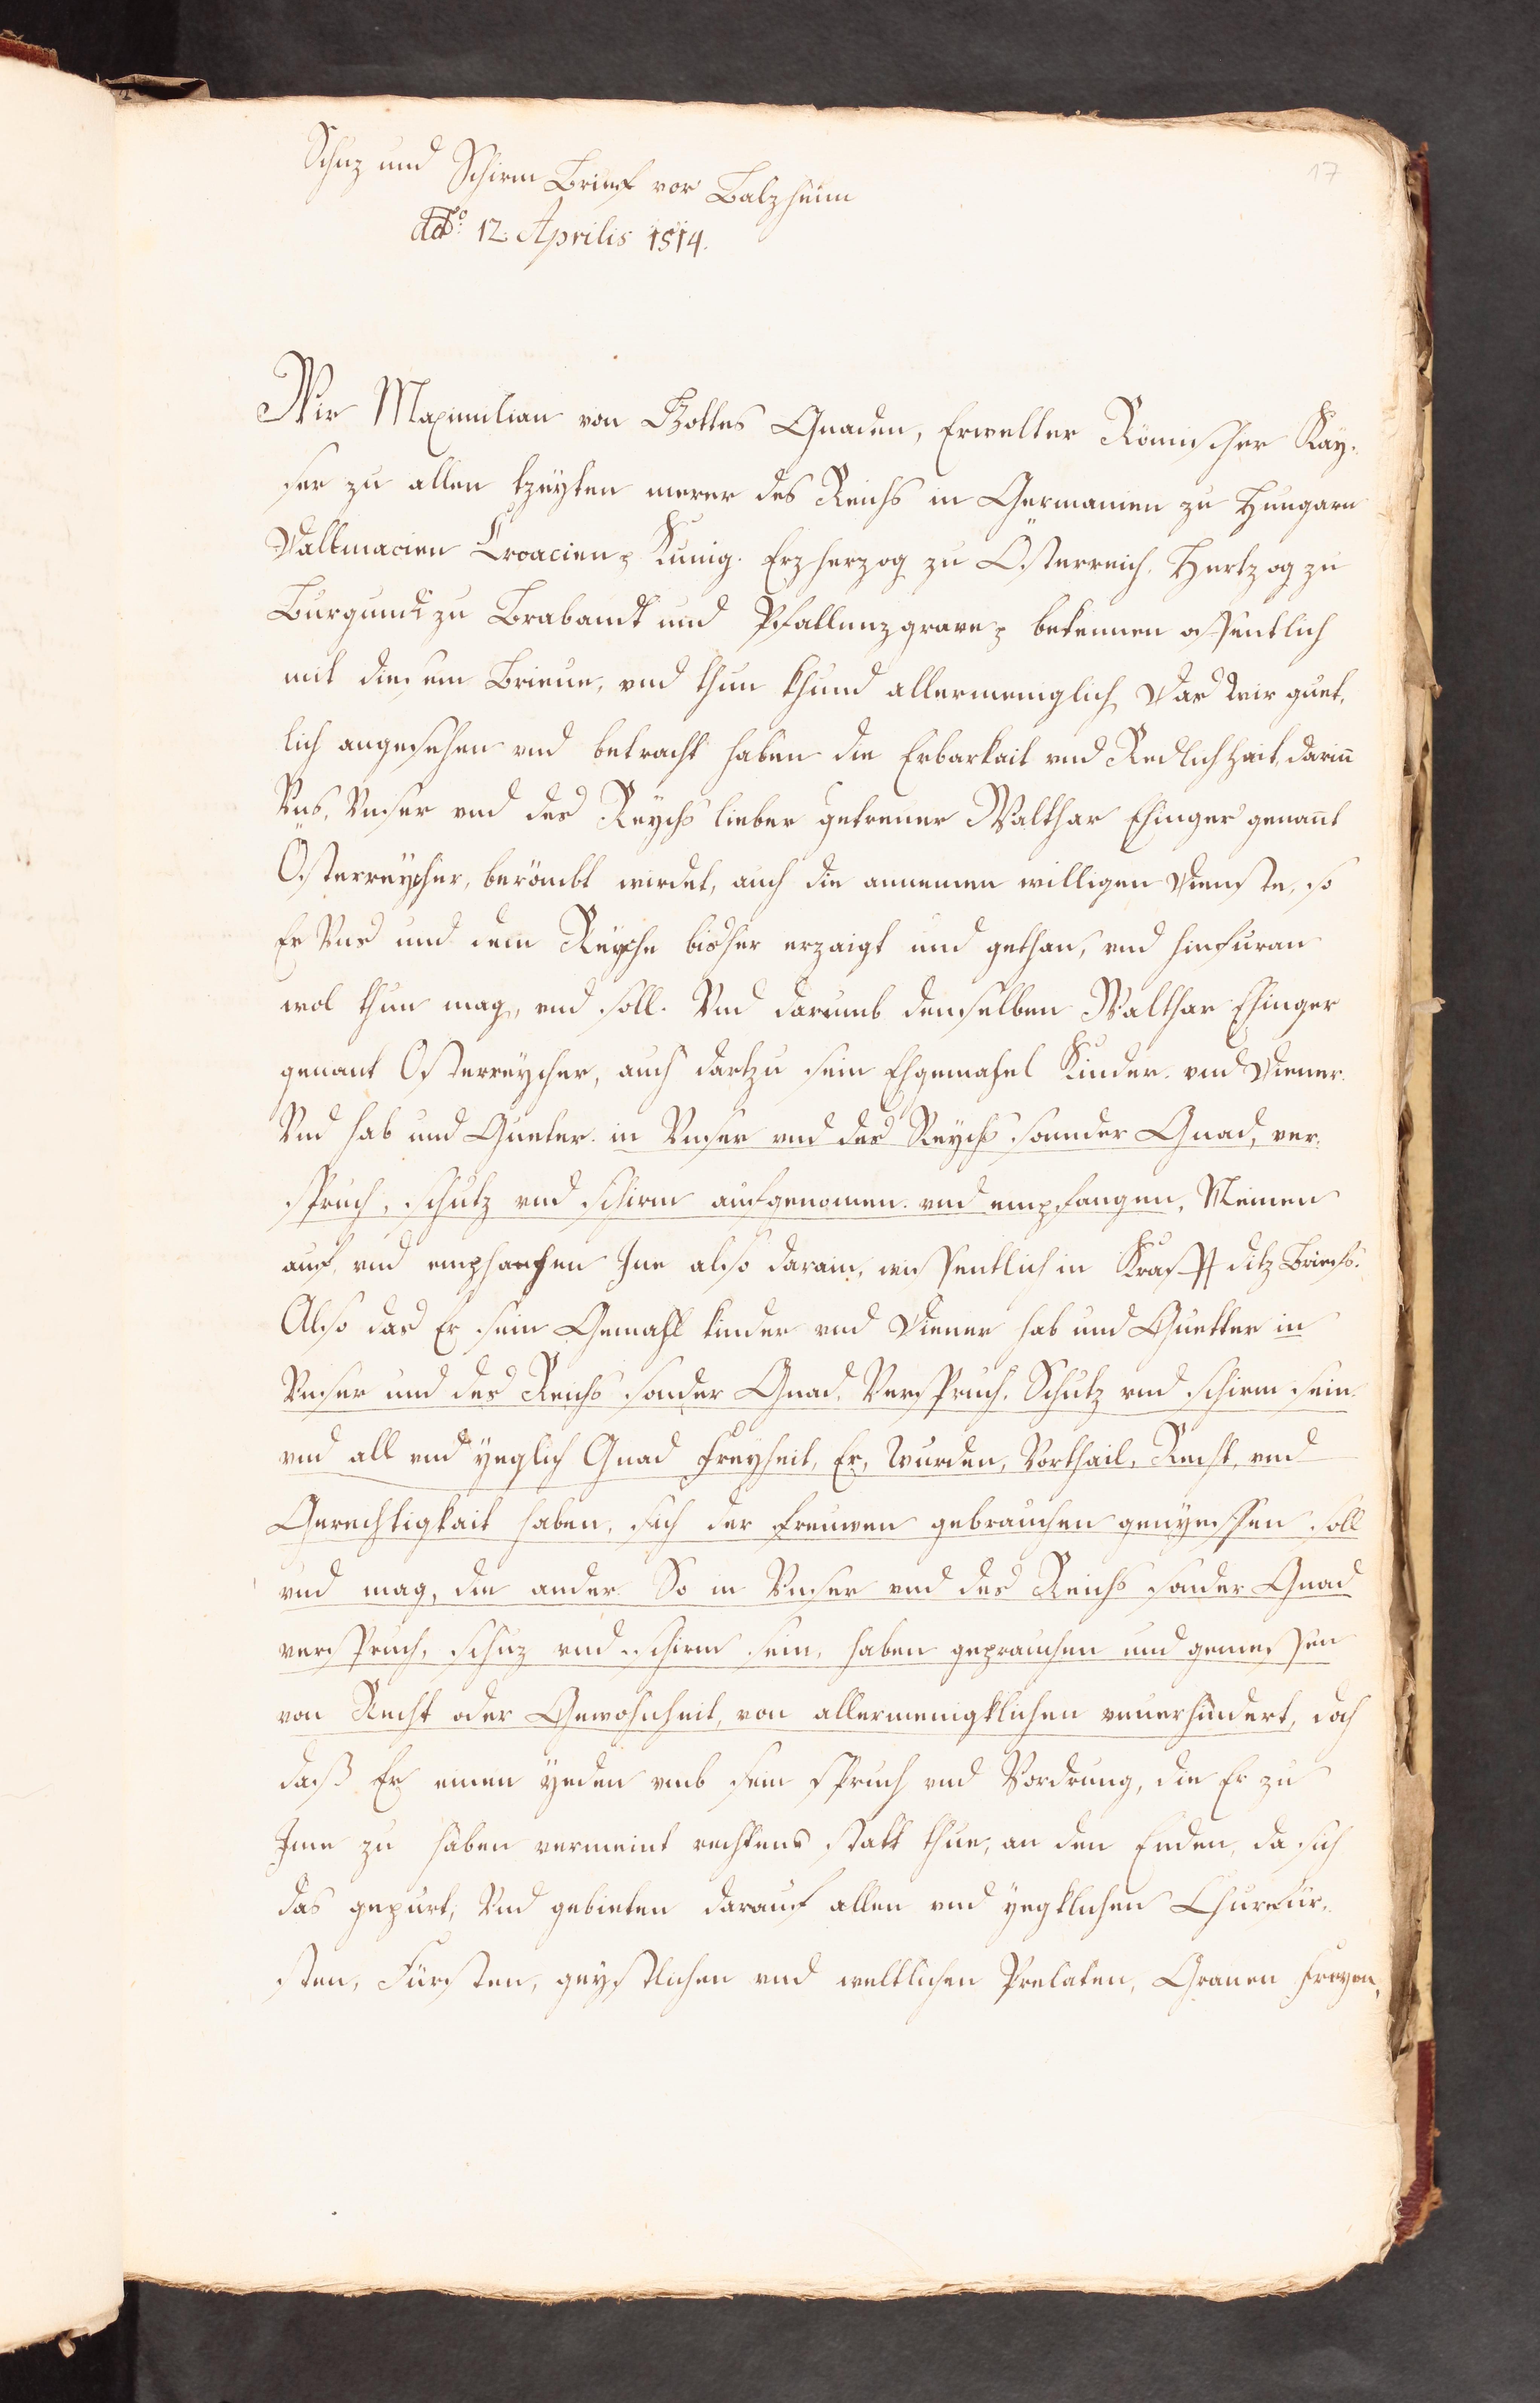 17
Schuz und Schirm Brieff vor Balzheim
dd̅o: 12. Aprilis 1514.
Wir Maximilian von Gottes Gnaden, Erwelter Römischer Kay-
ser zu allen tzeyten merer des Reichs in Germanien zu Hungarn
Dallmacien Croacien Kunig. Erzherzog zu Österreich. Hertzog zu
Burgundi zu Brabandt und Pfallenzgrave bekennen offentlich
mit diesem Brieve, und thun khund allermeniglich Das Wir guet-
lich angesehen vnd betracht haben die Erbarkait vnd Redlichhait, darin̄
Vns, Vnser vnd des Reychs lieber getreuer Walthar Ehinger genan̄t
Österreycher, berömbt wirdet, auch die annemen willigen Dienste, so
Er Vns und dem Reyche bisher erzaigt und gethan, vnd hinfuran
wol thun mag, vnd soll. Vnd darumb demselben Walthar Ehinger
genant Osterreycher, auch dartzu sein Ehgemahel Kinder. vnd Diener.
Vnd hab und Gueter. in Vnser vnd des Reychs sonnder Gnad, ver-
spruch, schutz vnd schirm aufgenomen. vnd empfangen, Nemen
auf, vnd emphachen Ine also darain, wissentlich in Krafft ditz Brieffs.
Also das Er sein Gemahl kinder vnd Diener hab und Guetter in
Vnser und des Reichs sonder Gnad. Verspruch. Schutz vnd schirm sein
vnd all vnd yeglich Gnad Freyheit, Er, Wurden, Vorthail, Recht, vnd
Gerechtigkait haben, sich der freuwen gebrauchen genyessen soll
vnd mag, die ander So in Vnser vnd des Reichs sonder Gnad
verspruch, schuz vnd schirm sein, haben geprauchen und geniessen
von Recht oder Gewohnheit, von allermenigklichen vnuerhindert, doch
daß Er einen yeden vmb sein spruch vnd Vordrung, die Er zu
Ime zu haben vermeint rechtens statt thue, an den Enden, da sich
das gepurt, Vnd gebieten darauf allen vnd yegklichen Churfür-
sten, Fürsten, geystlichen vnd weltlichen Prelaten, Grauen Freyen,